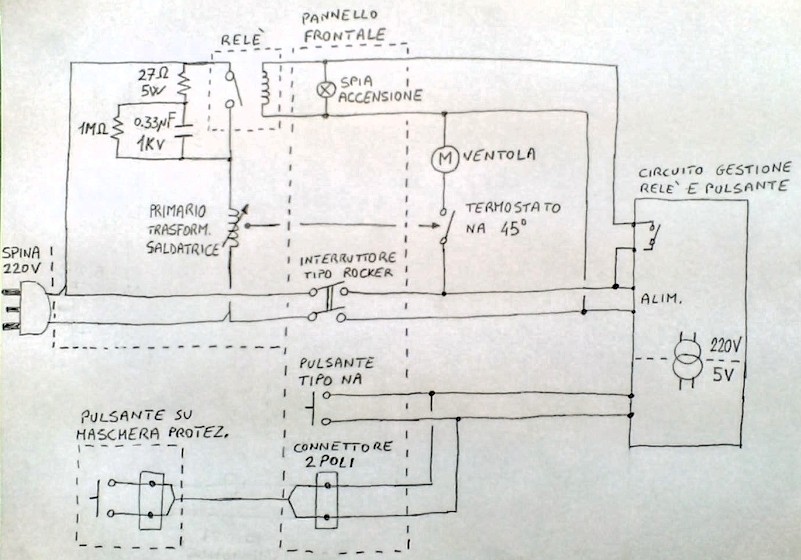 PANNELLO
FRONTALE
RELÈ
27Ω
5W
1MΩ
0.33µF
1KV
SPIA
ACCENSIONE
M VENTOLA
CIRCUITO GESTIONE
RELE' E PULSANTE
PRIMARIO
TRASFORM.
SALDATRICE
TERMOSTATO
NA 45°
SPINA
220V
INTERRUTTORE
TIPO ROCKER
ALIM.
220V
5V
PULSANTE
TIPO NA
PULSANTE SU
MASCHERA PROTEZ.
CONNETTORE
2 POLI